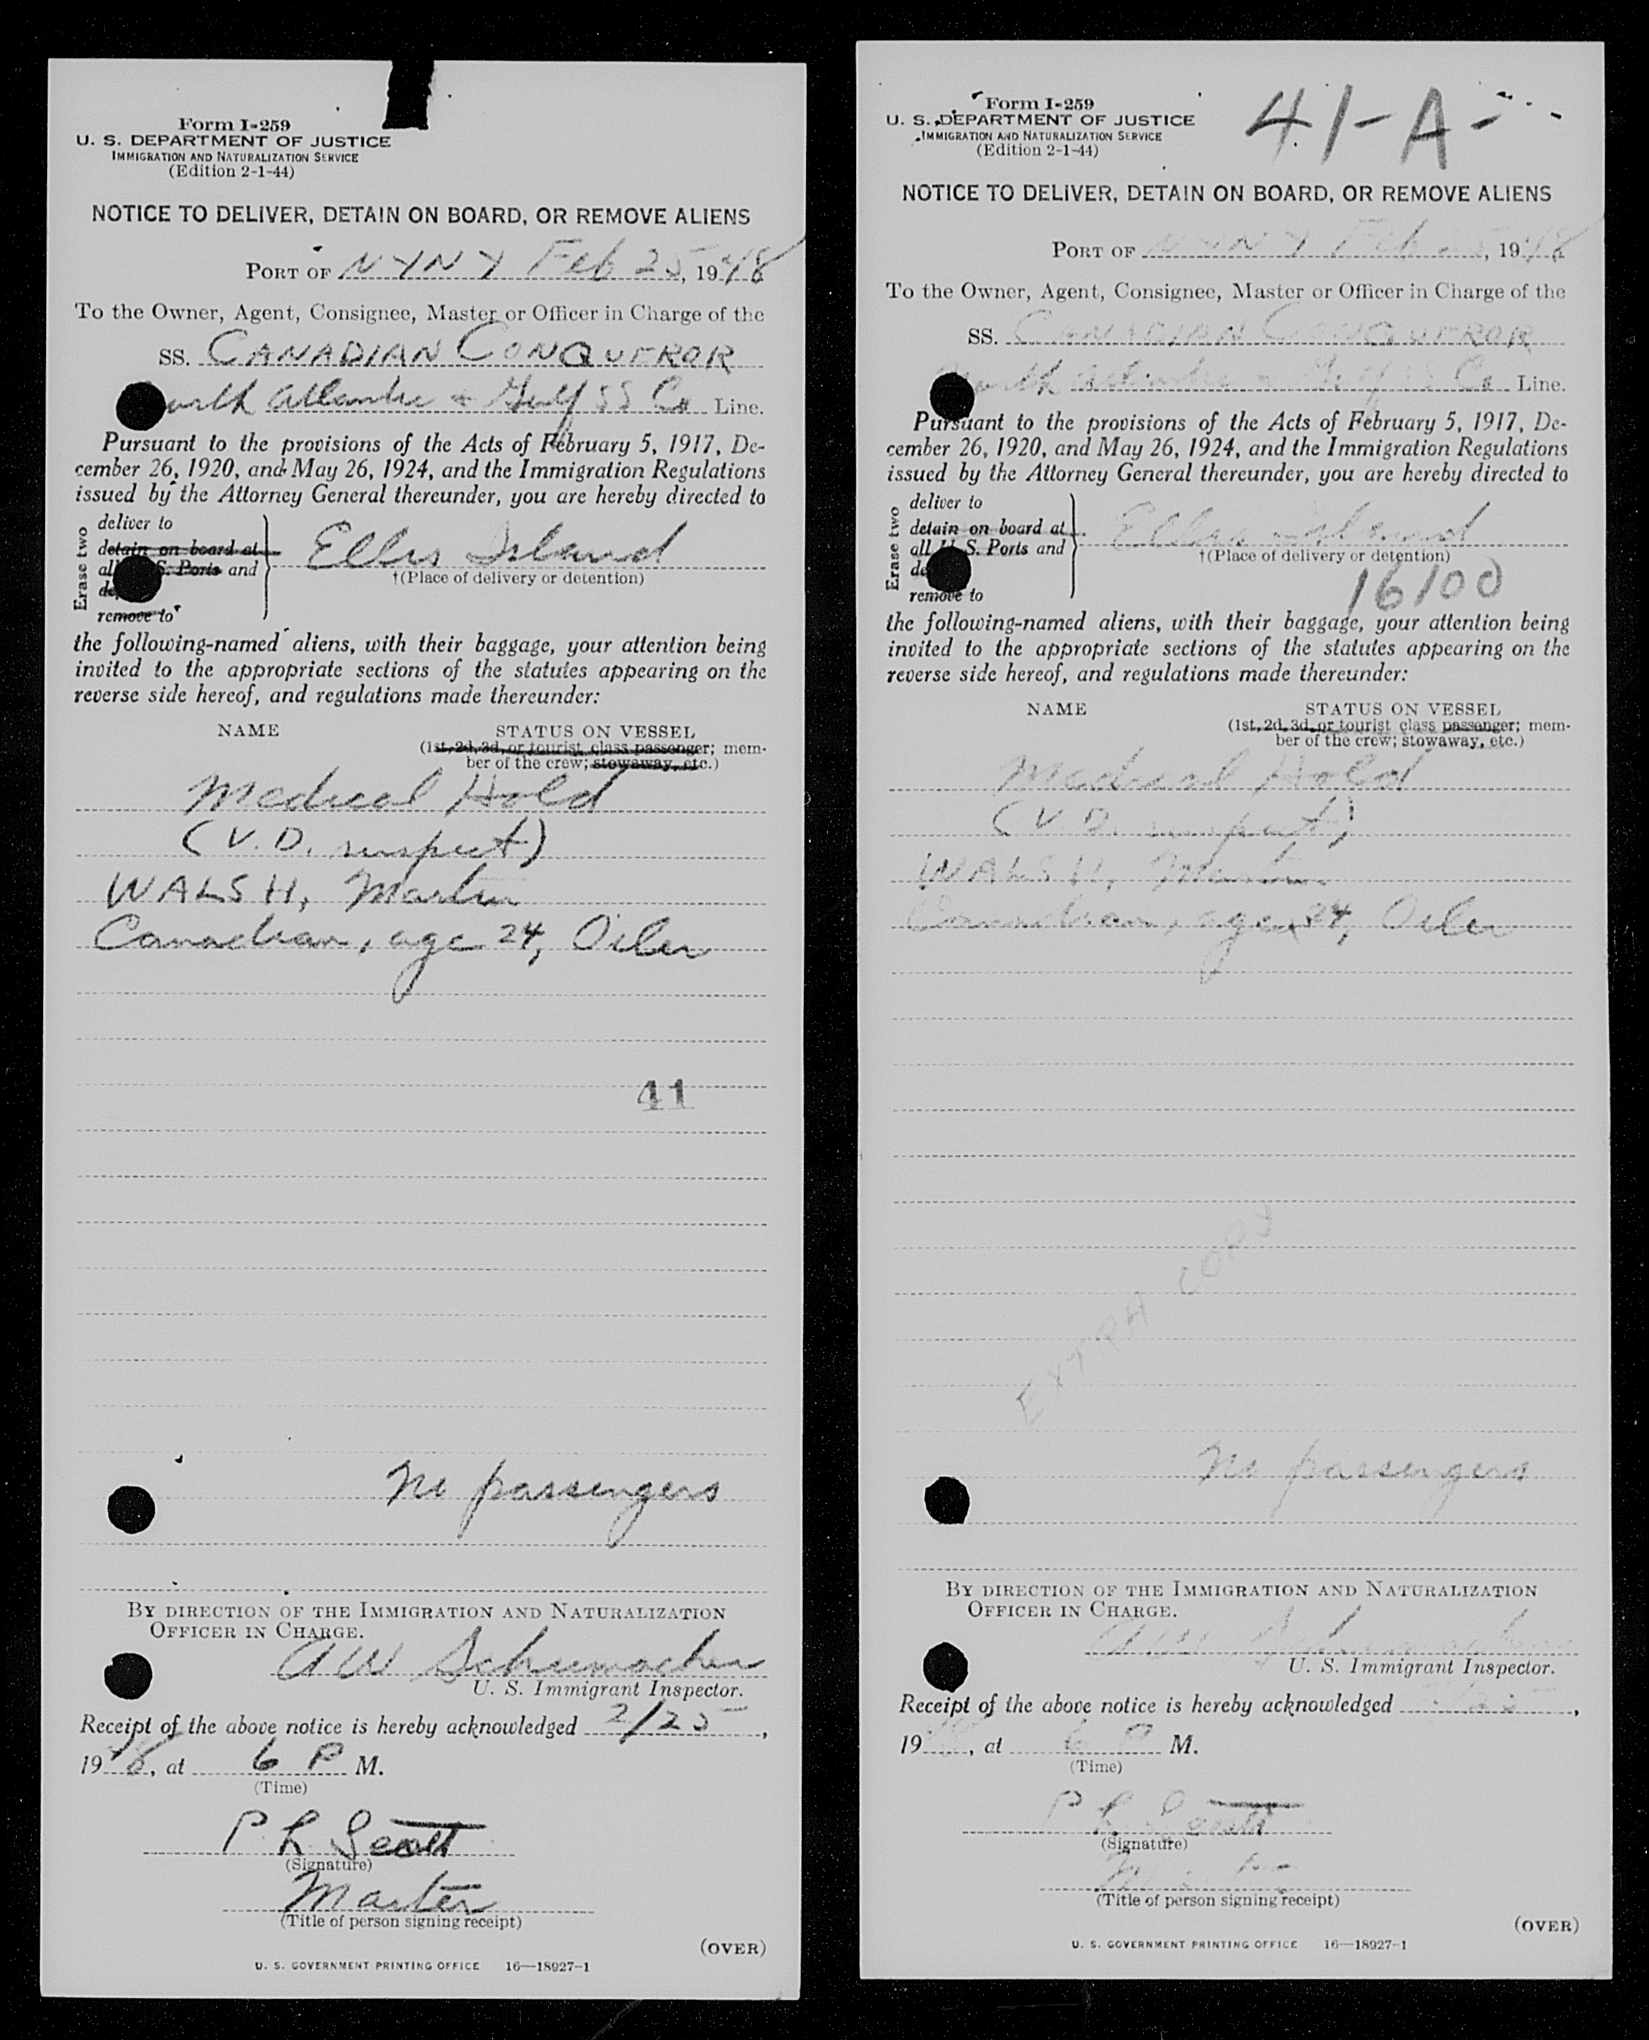 Form I-259
U. S. DEPARTMENT OF JUSTICE
IMMIGRATION AND NATURALIZATION SERVICE
(Edition 2-1-44)
NOTICE TO DELIVER, DETAIN ON BOARD, OR REMOVE ALIENS
PORT OF NYNY Feb 25, 1948
To the Owner, Agent, Consignee, Master or Officer in Charge of the
SS. CANADIAN CONQUEROR
North Atlantic & Gulf SS Co Line.
Pursuant to the provisions of the Acts of February 5, 1917, De-
cember 26, 1920, and May 26, 1924, and the Immigration Regulations
issued by the Attorney General thereunder, you are hereby directed to
Erase two
deliver to
detain on board at
all U. S. Ports and
remove to
Ellis Island
†(Place of delivery or detention)
the following-named aliens, with their baggage, your attention being
invited to the appropriate sections of the statutes appearing on the
reverse side hereof, and regulations made thereunder:
NAME STATUS ON VESSEL
(1st, 2d, 3d, or tourist class passenger; mem-
ber of the crew; stowaway, etc.)
Medical Hold
(V.D. suspect)
WALSH, Martin
Canadian, age 24, Oiler
41
No passengers
BY DIRECTION OF THE IMMIGRATION AND NATURALIZATION
OFFICER IN CHARGE.
AW Schumacher
U. S. Immigrant Inspector.
Receipt of the above notice is hereby acknowledged 2/25,
1948, at 6 P M.
(Time)
P L Scott
(Signature)
Master
(Title of person signing receipt)
(OVER)
U. S. GOVERNMENT PRINTING OFFICE 16—18927-1
Form I-259
U. S. DEPARTMENT OF JUSTICE
IMMIGRATION AND NATURALIZATION SERVICE
(Edition 2-1-44)
41-A-
NOTICE TO DELIVER, DETAIN ON BOARD, OR REMOVE ALIENS
PORT OF NYNY Feb 25, 1948
To the Owner, Agent, Consignee, Master or Officer in Charge of the
SS. CANADIAN CONQUEROR
North Atlantic & Gulf SS Co Line.
Pursuant to the provisions of the Acts of February 5, 1917, De-
cember 26, 1920, and May 26, 1924, and the Immigration Regulations
issued by the Attorney General thereunder, you are hereby directed to
Erase two
deliver to
detain on board at
all U. S. Ports and
remove to
Ellis Island
†(Place of delivery or detention)
16100
the following-named aliens, with their baggage, your attention being
invited to the appropriate sections of the statutes appearing on the
reverse side hereof, and regulations made thereunder:
NAME STATUS ON VESSEL
(1st, 2d, 3d, or tourist class passenger; mem-
ber of the crew; stowaway, etc.)
Medical Hold
(V.D. suspect)
WALSH, Martin
Canadian, age 24, Oiler
EXTRA COPY
No passengers
BY DIRECTION OF THE IMMIGRATION AND NATURALIZATION
OFFICER IN CHARGE.
AW Schumacher
U. S. Immigrant Inspector.
Receipt of the above notice is hereby acknowledged 2/25,
1948, at 6 P M.
(Time)
P L Scott
(Signature)
Master
(Title of person signing receipt)
(OVER)
U. S. GOVERNMENT PRINTING OFFICE 16—18927-1